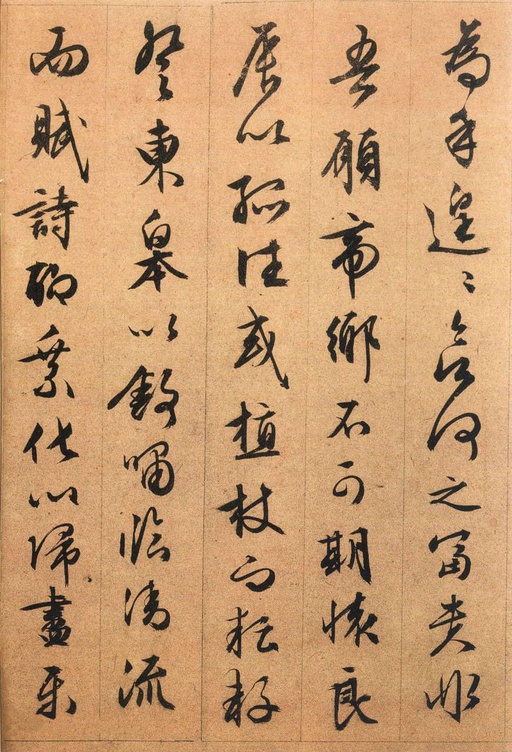 為乎遑〻欲何之富貴非
吾願帝鄉不可期懷良
辰以孤往或植杖而耘耔
登東皋以舒嘯臨清流
而賦詩聊乘化以歸盡樂